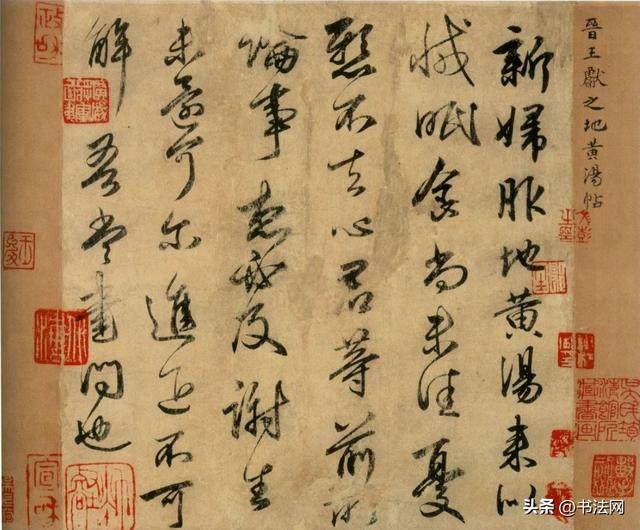 晉王獻之地黄湯帖
新婦服地黄湯来似
減眠食尚未佳憂
懸不去心君等前所
論事想必及謝生
未還可尔進退不可
解吾當書問也
政和
宣和
头条 @书法网